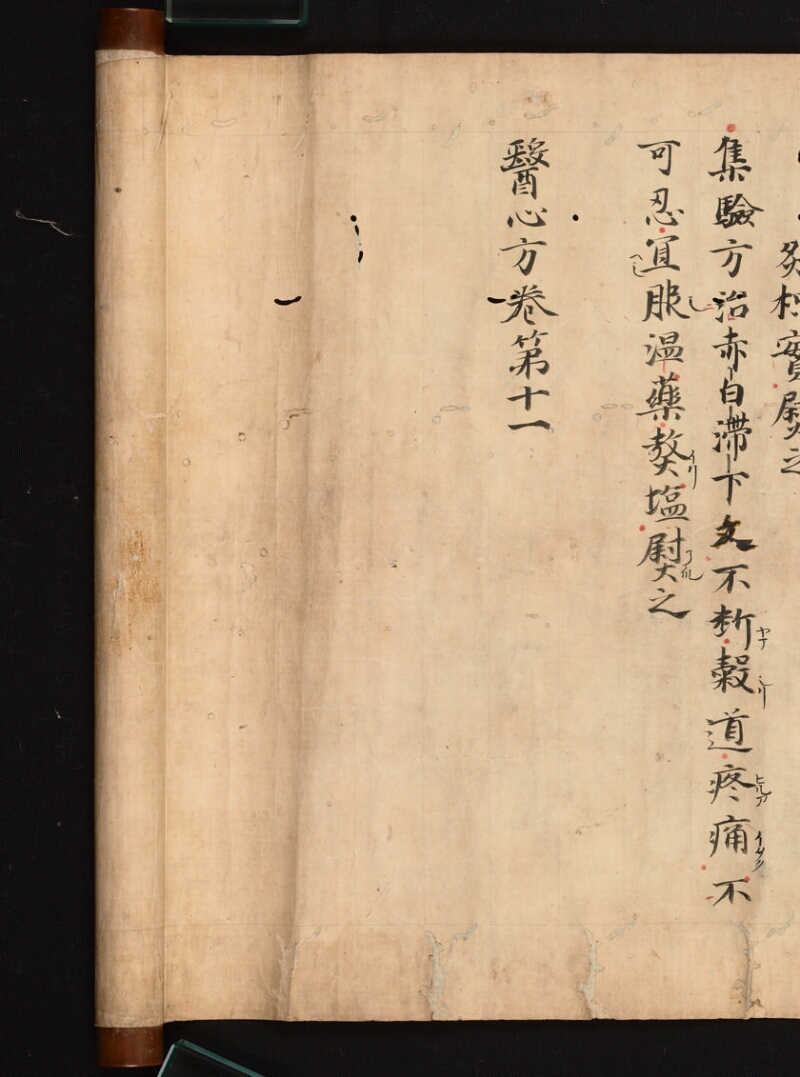 炙枳實熨之
集驗方治赤白滯下久不断穀道疼痛不
可忍宜服温藥熬塩熨之
醫心方卷第十一